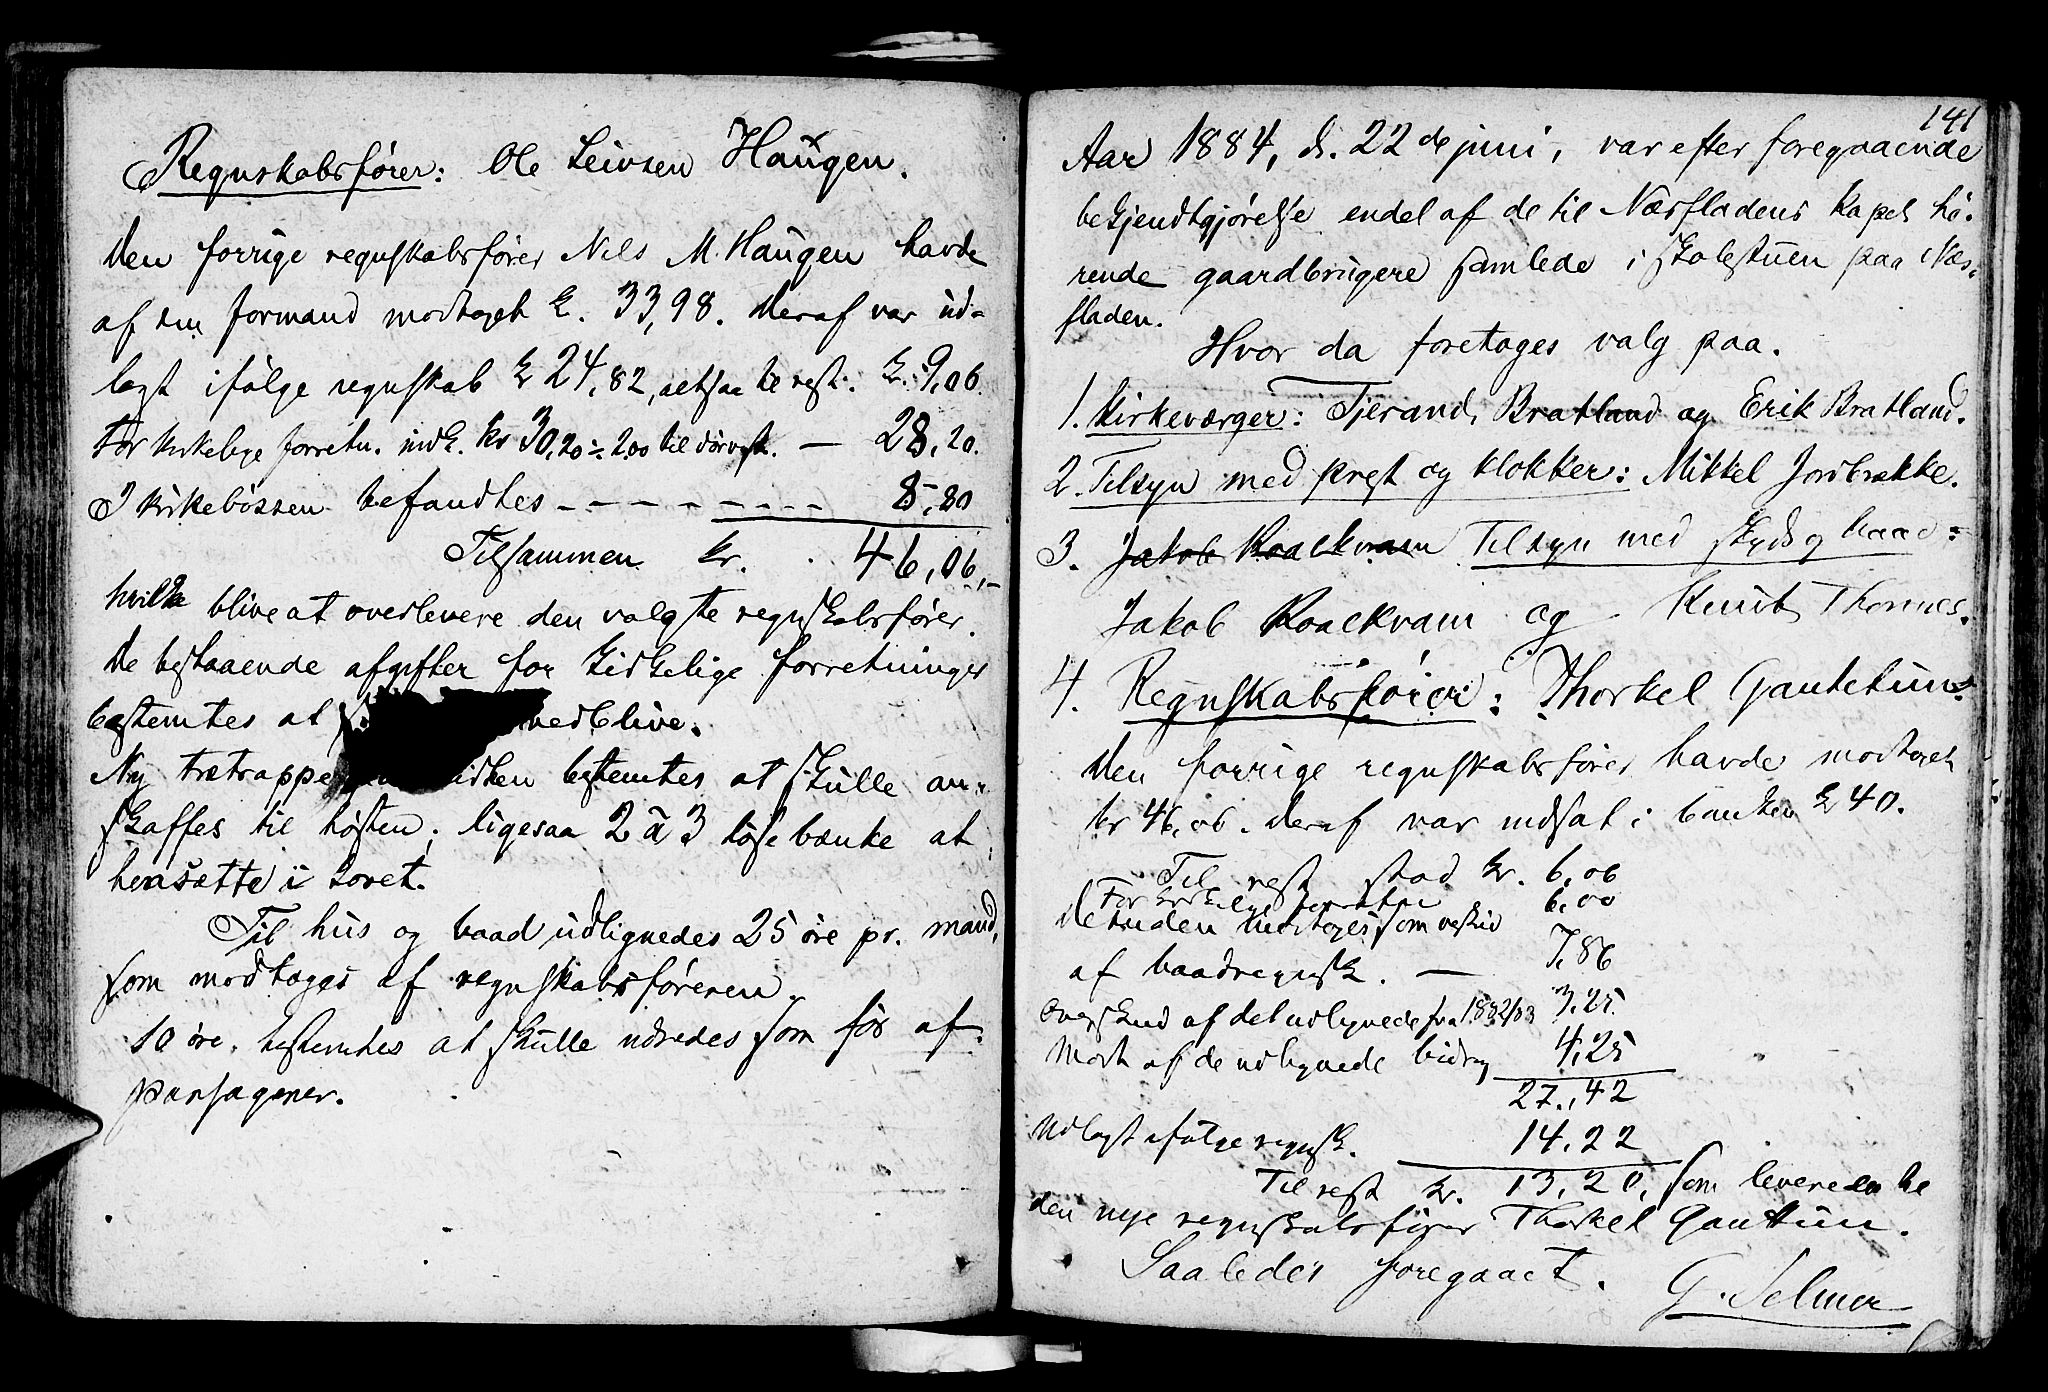 Regnskabsfører: Ole Leivsen Haugen.
Den forrige regnskabsfører Nils M. Haugen havde
af sin formand modtaget k. 33,98. Deraf var ud-
lagt ifølge regnskab k 24,82, altsaa til rest: k. 9,06
For kirkelige forretn. indk. kr 30,20 ÷ 2.00 til – 28,20.
I kirkebössen befandtes - - - - - - - - 8,80
Tilsammen kr. 46,06,-
hvilke blive at overlevere den valgte regnskabsfører.
De bestaaende afgifter for kirkelige forretninger
bestemtes at vedblive.
Ny trætrappe kirken bestemtes at skulle an-
skaffes til høsten; ligesaa 2 à 3 løse bænke at
hensætte i koret.
Til hus og baad udlignedes 25 øre pr. mand,
som modtages af regnskabsføreren.
10 øre bestemtes at skulle udredes som før af
passagerer.
141
Aar 1884, d. 22 de juni, var efter foregaaende
bekjendtgjørelse endel af de til Næsfladens kapel hö-
rende gaardbrugere samlede i skolestuen paa Næs-
fladen.
Hvor da foretoges valg paa.
1. Kirkeværger: Tjerand Bratland og Erik Bratland.
2. Tilsyn med prest og klokker: Mikkel Jordbrække.
3. Jakob Roalkvam Tilsyn med skyds og baad:
Jakob Roalkvam og Knut Thornes.
4. Regnskabsfører: Thorkel Gautetun.
Den forrige regnskabsfører havde modtaget
kr 46,06. Deraf var indsat i banken k 40.
Til rest stod kr. 6,06
For kirkelige forretn 6,00
Desuden modtoges som restid
af baadregnsk. — 7,86
Overskud af det udlignede fra 1882/83 3,25.
Modt. af de udlignede bidrag 4,25
27,,42
Udlagt ifølge regnsk. 14,22
Til rest kr. 13,20, som leveredes til
den nye regnskabsfører Thorkel Gauttun.
Saaledes foregaaet.
G. Selmer